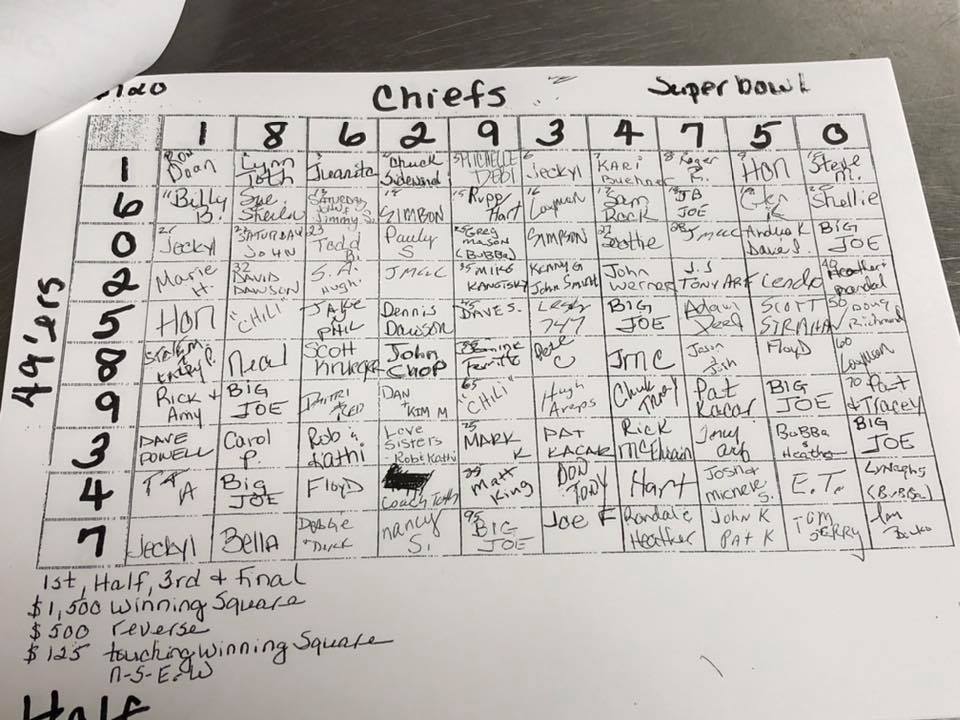 $120
Chiefs
Superbowl
49'ers
1 8 6 2 9 3 4 7 5 0
1 Ron Doan Lynn Toth Juanita Chuck MICHELLE DEBI Jeckyl KARI Buehner Roger P. Hon Steve M.
6 Billy B. Sue Sheila SATURDAY Jimmy S. SIMBON Rupp/Hart Layman Sam Rock JB JOE Shellie
0 Jeckyl SATURDAY JOHN Todd B. Pauly S Greg mason (BUBBA) SIMPSON JMCC Andrea K Dave S. BIG JOE
2 Marie H. DAVID DAWSON S.A. Hugh. JMCC MIKE KENNY G John Smith John Werner J.J TONY ART Lendo Heather
5 Hon "CHILI" JAKE PHIL Dennis Dawson DAVE S. 747 BIG JOE Adam SCOTT STRAHAN Doug Richard
8 Neal SCOTT KRUEGER John CHOP C JMC Jason Josh FLOYD Layman
9 Rick + Amy BIG JOE DAN + KIM M "CHILI" Hugh Chuck Troy Pat Kacar BIG JOE Pat & Tracey
3 DAVE POWELL Carol P. Rob & Kathi Love Sisters Robi Kathi MARK K PAT KACAR RICK Jerry art BUBBA & Heather BIG JOE
4 Big JOE FLOYD Coach Toth Matt King DON TONY Hart Joshar michele S. E.T. (BUBBA)
7 Jeckyl BELLA Debbie Dick nancy S. BIG JOE Joe F Rondale Heather JOHN K PAT K TOM JERRY
1st, Half, 3rd & Final
$1,500 Winning Square
$500 reverse
$125 touching Winning Square
N-S-E-W
Half